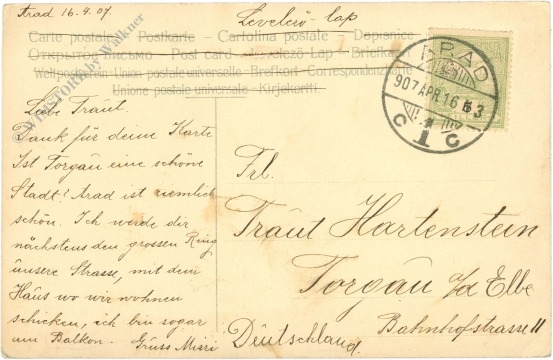 Arad 16.4.07.
Levelező-lap
Carte postale - Postkarte - Cartolina postale - Dopisnice
Открытое письмо - Post card - Levelező-Lap - Briefkaart
Weltpostverein - Union postale universelle - Brefkort - Correspondenzkarte
Unione postale universale - Kirjekortti
©WIMSTORE by Walkner
ARAD
907 APR.16 É 3
C 1 C
Liebe Traut.
Dank für deine Karte
Ist Torgau eine schöne
Stadt? Arad ist ziemlich
schön. Ich werde dir
nächstens den grossen Ring
unsere Strasse, mit dem
Haus wo wir wohnen
schicken, ich bin sogar
am Balkon. Gruss Mizzi
Frl.
Traut Hartenstein
Torgau a/d Elbe
Bahnhofstrasse 11
Deutschland.